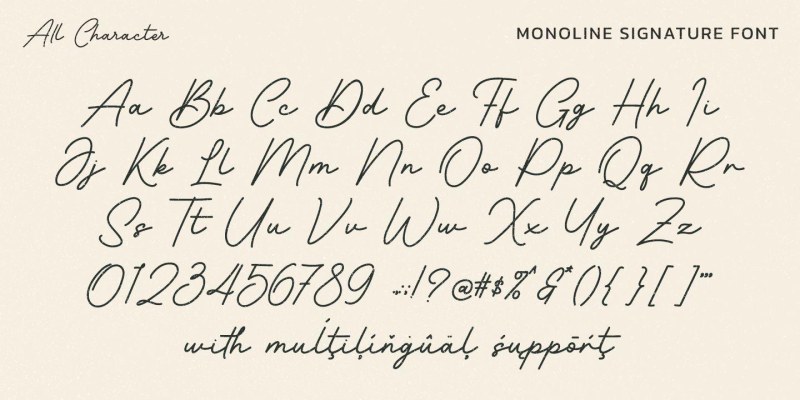 All Character
MONOLINE SIGNATURE FONT
Aa Bb Cc Dd Ee Ff Gg Hh Ii
Jj Kk Ll Mm Nn Oo Pp Qq Rr
Ss Tt Uu Vv Ww Xx Yy Zz
0123456789 .,:;!?@#$%^&*(){}[]"'
with muĺţiļíňġûäļ śuppōŕţ